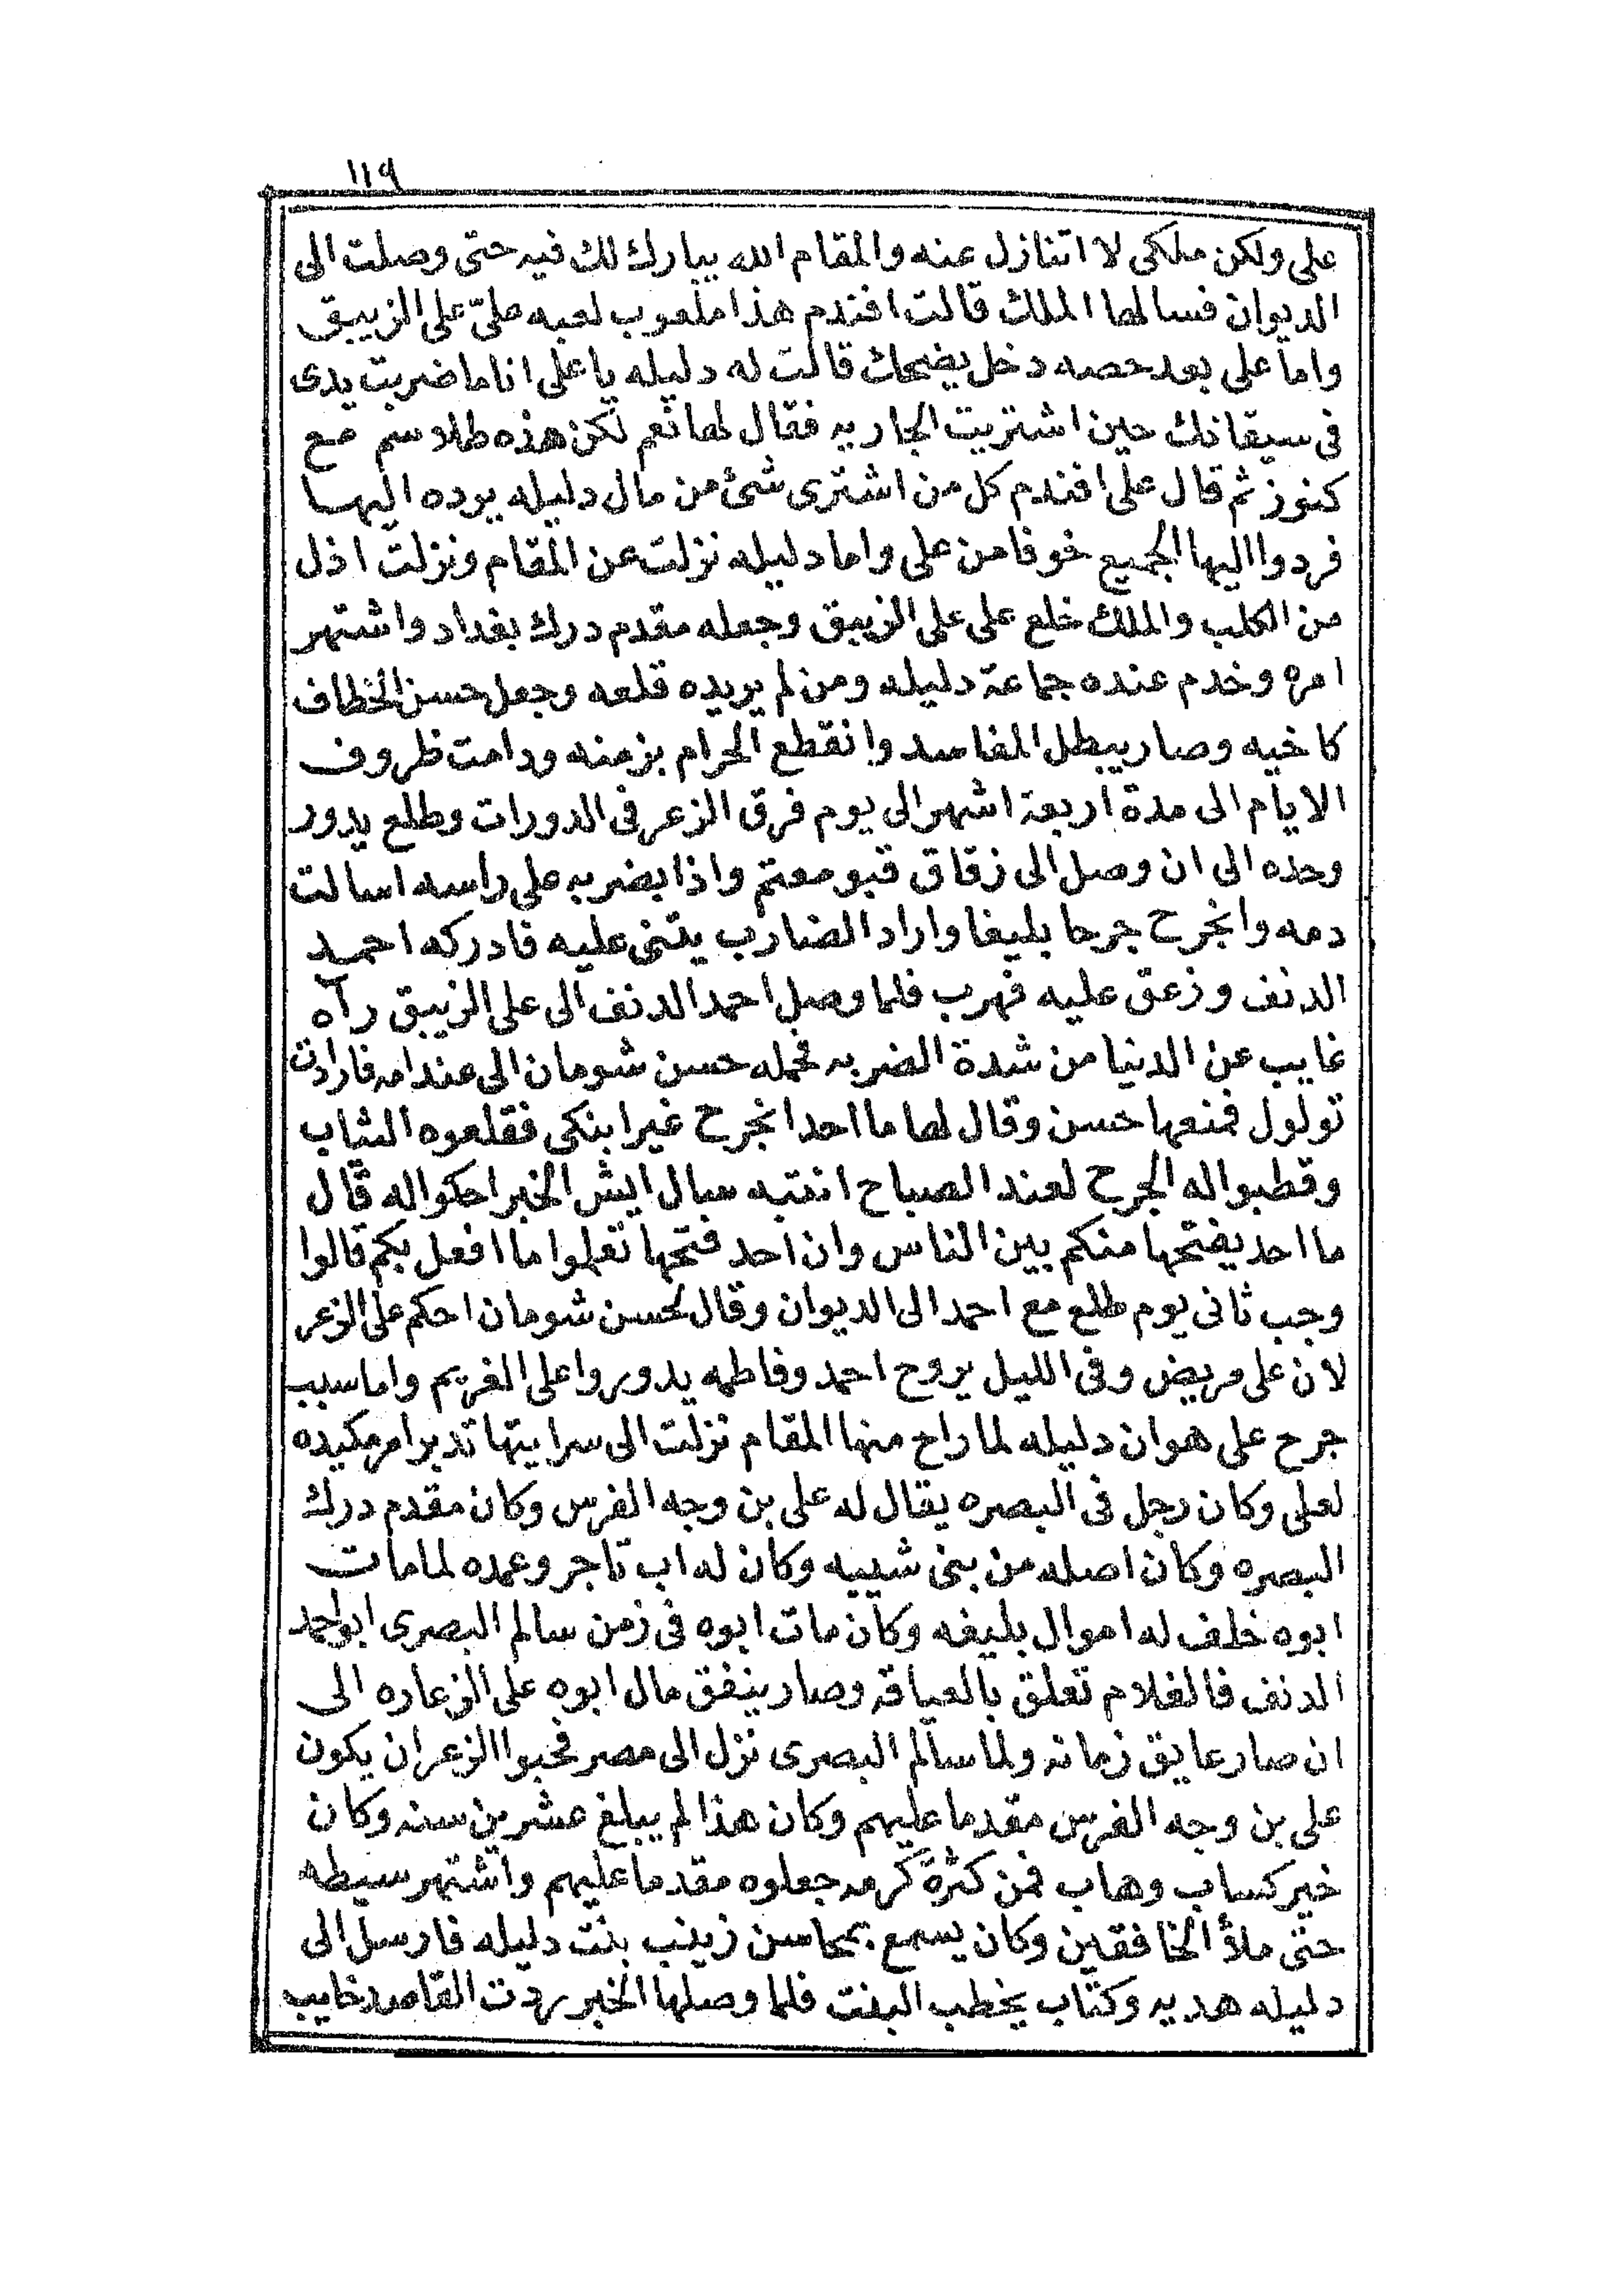 ١١٩
على ولكن ملكى لا اتنازل عنه والمقام الله يبارك لك فيه حتى وصلت الى
الديوان فسالها الملك قالت افندم هذا ملعوب لعبه علىّ على الزيبق
واما على بعد حصه دخل يضحك قالت له دليله يا على انا ما ضربت يدى
فى سيقانك حين اشتريت الجاريه فقال لها نعم لكن هذه طلاسم مع
كنوز ثم قال على افندم كل من اشترى شئ من مال دليله يرده اليها
فردوا اليها الجميع خوفا من على واما دليله نزلت عن المقام ونزلت اذل
من الكلب والملك خلع على على الزيبق وجعله مقدم درك بغداد واشتهر
امره وخدم عنده جماعة دليله ومن لم يريده قلعه وجعل حسن الخطاف
كاخيه وصار يبطل المفاسد وانقطع الحرام بزمنه ودامت ظروف
الايام الى مدة اربعة اشهر الى يوم فرق الزعر فى الدورات وطلع يدور
وحده الى ان وصل الى زقاق قبو معتم واذا بضربه على راسه اسالت
دمه وانجرح جرحا بليغا واراد الضارب يتنى عليه فادركه احمد
الدنف وزعق عليه فهرب فلما وصل احمد الدنف الى على الزيبق رآه
غايب عن الدنيا من شدة الضربه فحمله حسن شومان الى عند امه فارادت
تولول فمنعها حسن وقال لها ما احد انجرح غير ابنكى فقلعوه الثياب
وقطبوا له الجرح لعند الصباح انتبه سال ايش الخبر احكوا له قال
ما احد يفتحها منكم بين الناس وان احد فتحها تعلموا ما افعل بكم قالوا
وجب ثانى يوم طلع مع احمد الى الديوان وقال لحسن شومان احكم على الزعر
لان على مريض وفى الليل يروح احمد وفاطمه يدوروا على الغريم واما سبب
جرح على هو ان دليله لما راح منها المقام نزلت الى سرايتها تدبر امر مكيده
لعلى وكان رجل فى البصره يقال له على بن وجه الفرس وكان مقدم درك
البصره وكان اصله من بنى شيبه وكان له اب تاجر وعمده لما مات
ابوه خلف له اموال بليغه وكان مات ابوه فى زمن سالم البصرى ابو احمد
الدنف فالغلام تعلق بالعياقه وصار ينفق مال ابوه على الزعاره الى
ان صار عايق زمانه ولما سالم البصرى نزل الى مصر فحبوا الزعر ان يكون
على بن وجه الفرس مقدما عليهم وكان هذا لم يبلغ عشرين سنه وكان
خير كساب وهاب فمن كثرة كرمه جعلوه مقدما عليهم واشتهر سيطه
حتى ملأ الخافقين وكان يسمع بمحاسن زينب بنت دليله فارسل الى
دليله هديه وكتاب يخطب البنت فلما وصلها الخبر ردت القاصد خايب